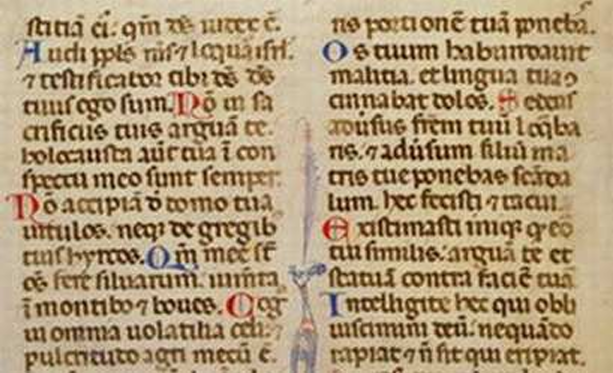 stitiā ei: qm̄ ds̄ iudex ē.
Audi ppl̄s ms̄ ⁊ loquā isrl̄.
⁊ testificabor tibi ds̄ ds̄
tuus ego sum. Nō in sa
crificiis tuis arguā te.
holocausta aūt tua ī con
spectu meo sunt semper.
Nō accipiā d̄ domo tua
uitulos. neqꝫ de gregib
tuis hyrcos. Qm̄ mee sr̄
oēs fere siluarum. iumēta
ī montibꝰ ⁊ boues. Cog
ui omnia uolatilia celi: ⁊
pulcritudo agri mecū ē.
ris portionē tuā ponebā.
Os tuum habundauit
malitia. et lingua tua
cinnabat dolos. Sedens
adūsus frēm tuū loq̄ba
ris. ⁊ adūsum filiū ma
tris tue ponebas scāda
lum. hec fecisti ⁊ tacui.
Existimasti iniqꝫ q eō
tui similis: arguā te et
statuā contra faciē tuā
Intelligite hec qui obli
uiscimini deū: nequādo
rapiat ⁊ n̄ sit qui eripiat.